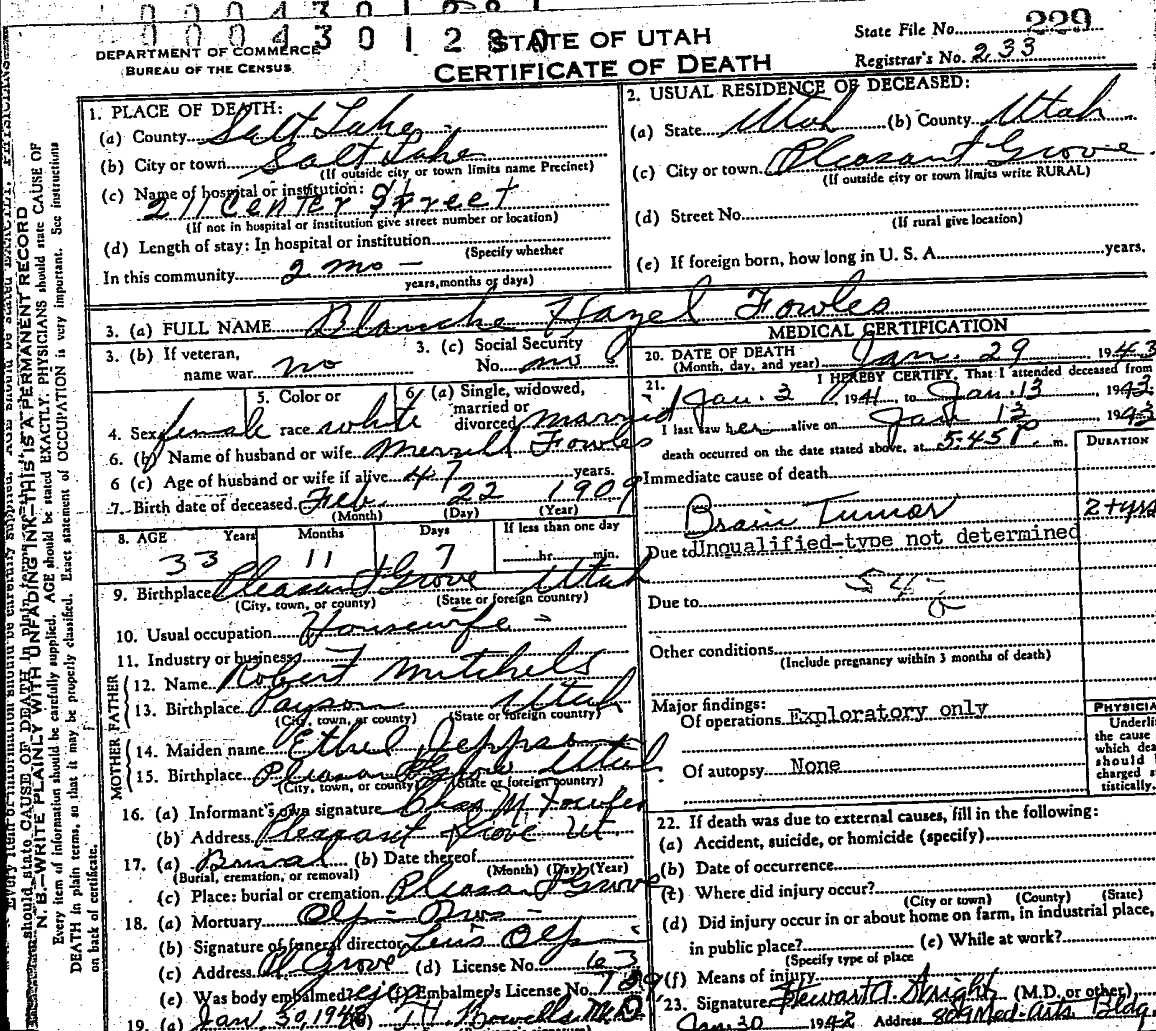 0004301281
00043012 80
DEPARTMENT OF COMMERCE
BUREAU OF THE CENSUS
STATE OF UTAH
CERTIFICATE OF DEATH
State File No. 229
Registrar's No. 233
1. PLACE OF DEATH:
(a) County Salt Lake
(b) City or town Salt Lake
(If outside city or town limits name Precinct)
(c) Name of hospital or institution:
211 Center Street
(If not in hospital or institution give street number or location)
(d) Length of stay: In hospital or institution
(Specify whether
In this community 2 mo -
years, months or days)
2. USUAL RESIDENCE OF DECEASED:
(a) State Utah (b) County Utah
(c) City or town Pleasant Grove
(If outside city or town limits write RURAL)
(d) Street No.
(If rural give location)
(e) If foreign born, how long in U. S. A. years.
3. (a) FULL NAME Blanche Hazel Fowles
3. (b) If veteran,
name war no
3. (c) Social Security
No. no
4. Sex female
5. Color or
race white
6. (a) Single, widowed,
married or
divorced married
6. (b) Name of husband or wife Merrill Fowles
6 (c) Age of husband or wife if alive 47 years.
7. Birth date of deceased Feb. 22 1909
(Month) (Day) (Year)
8. AGE Years Months Days If less than one day
33 11 7 hr. min.
9. Birthplace Pleasant Grove Utah
(City, town, or county) (State or foreign country)
10. Usual occupation Housewife -
11. Industry or business
FATHER
12. Name Robert F Mitchels
13. Birthplace Payson Utah
(City, town, or county) (State or foreign country)
MOTHER
14. Maiden name Ethel
15. Birthplace Pleasant Grove Utah
(City, town, or county) (State or foreign country)
16. (a) Informant's own signature Chas M Fowles
(b) Address Pleasant Grove Ut
17. (a) Burial (b) Date thereof
(Burial, cremation, or removal) (Month) (Day) (Year)
(c) Place: burial or cremation Pleasant Grove
18. (a) Mortuary Olp - Bros -
(b) Signature of funeral director Olp
(c) Address Pl Grove (d) License No. 63
(e) Was body embalmed? yes (f) Embalmer's License No.
19. (a) Jan. 30, 1943 (b) M.D.
MEDICAL CERTIFICATION
20. DATE OF DEATH
(Month, day, and year) Jan. 29 1943
21. I HEREBY CERTIFY, That I attended deceased from
Jan. 3 1941, to Jan. 13, 1943
I last saw her alive on Jan 13 1943
death occurred on the date stated above, at 5:45 P. m.
DURATION
Immediate cause of death
Brain Tumor 2+yrs
Due to Unqualified-type not determined
54
Due to
Other conditions
(Include pregnancy within 3 months of death)
Major findings:
Of operations Exploratory only
Of autopsy None
PHYSICIA
Underli
the cause
which dea
should b
charged s
tistically.
22. If death was due to external causes, fill in the following:
(a) Accident, suicide, or homicide (specify)
(b) Date of occurrence
(c) Where did injury occur?
(City or town) (County) (State)
(d) Did injury occur in or about home on farm, in industrial place,
in public place? (e) While at work?
(Specify type of place
(f) Means of injury
23. Signature Stewart A. Wright (M.D. or other)
Jan 30 1942 Address 809 Med-Arts Bldg.
N. B.—WRITE PLAINLY WITH UNFADING INK—THIS IS A PERMANENT RECORD
Every item of information should be carefully supplied. AGE should be stated EXACTLY. PHYSICIANS should state CAUSE OF
DEATH in plain terms, so that it may be properly classified. Exact statement of OCCUPATION is very important. See instructions
on back of certificate.